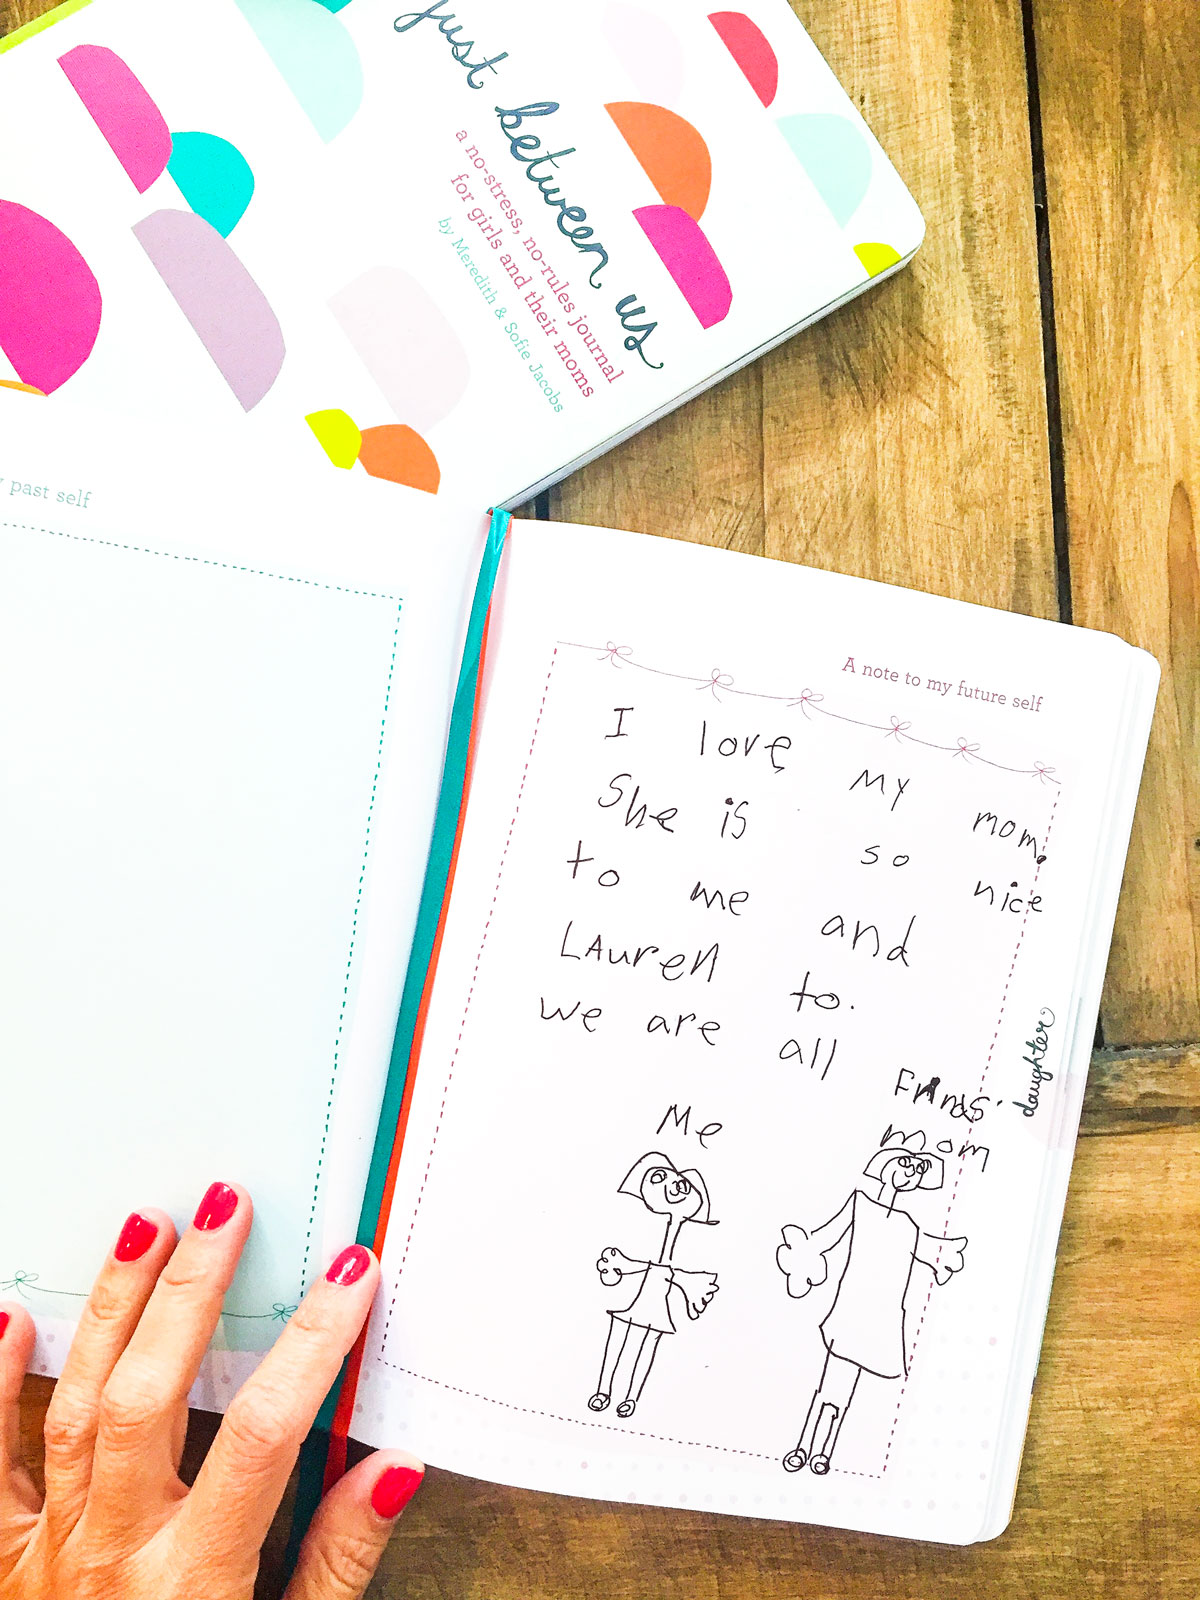 just between us
a no-stress, no-rules journal
for girls and their moms
by Meredith & Sofie Jacobs
past self
A note to my future self
I love my mom.
She is so nice
to me and
LAuren to.
we are all
daughter
Me
mom